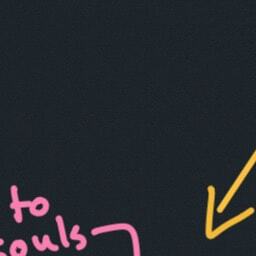 to
souls